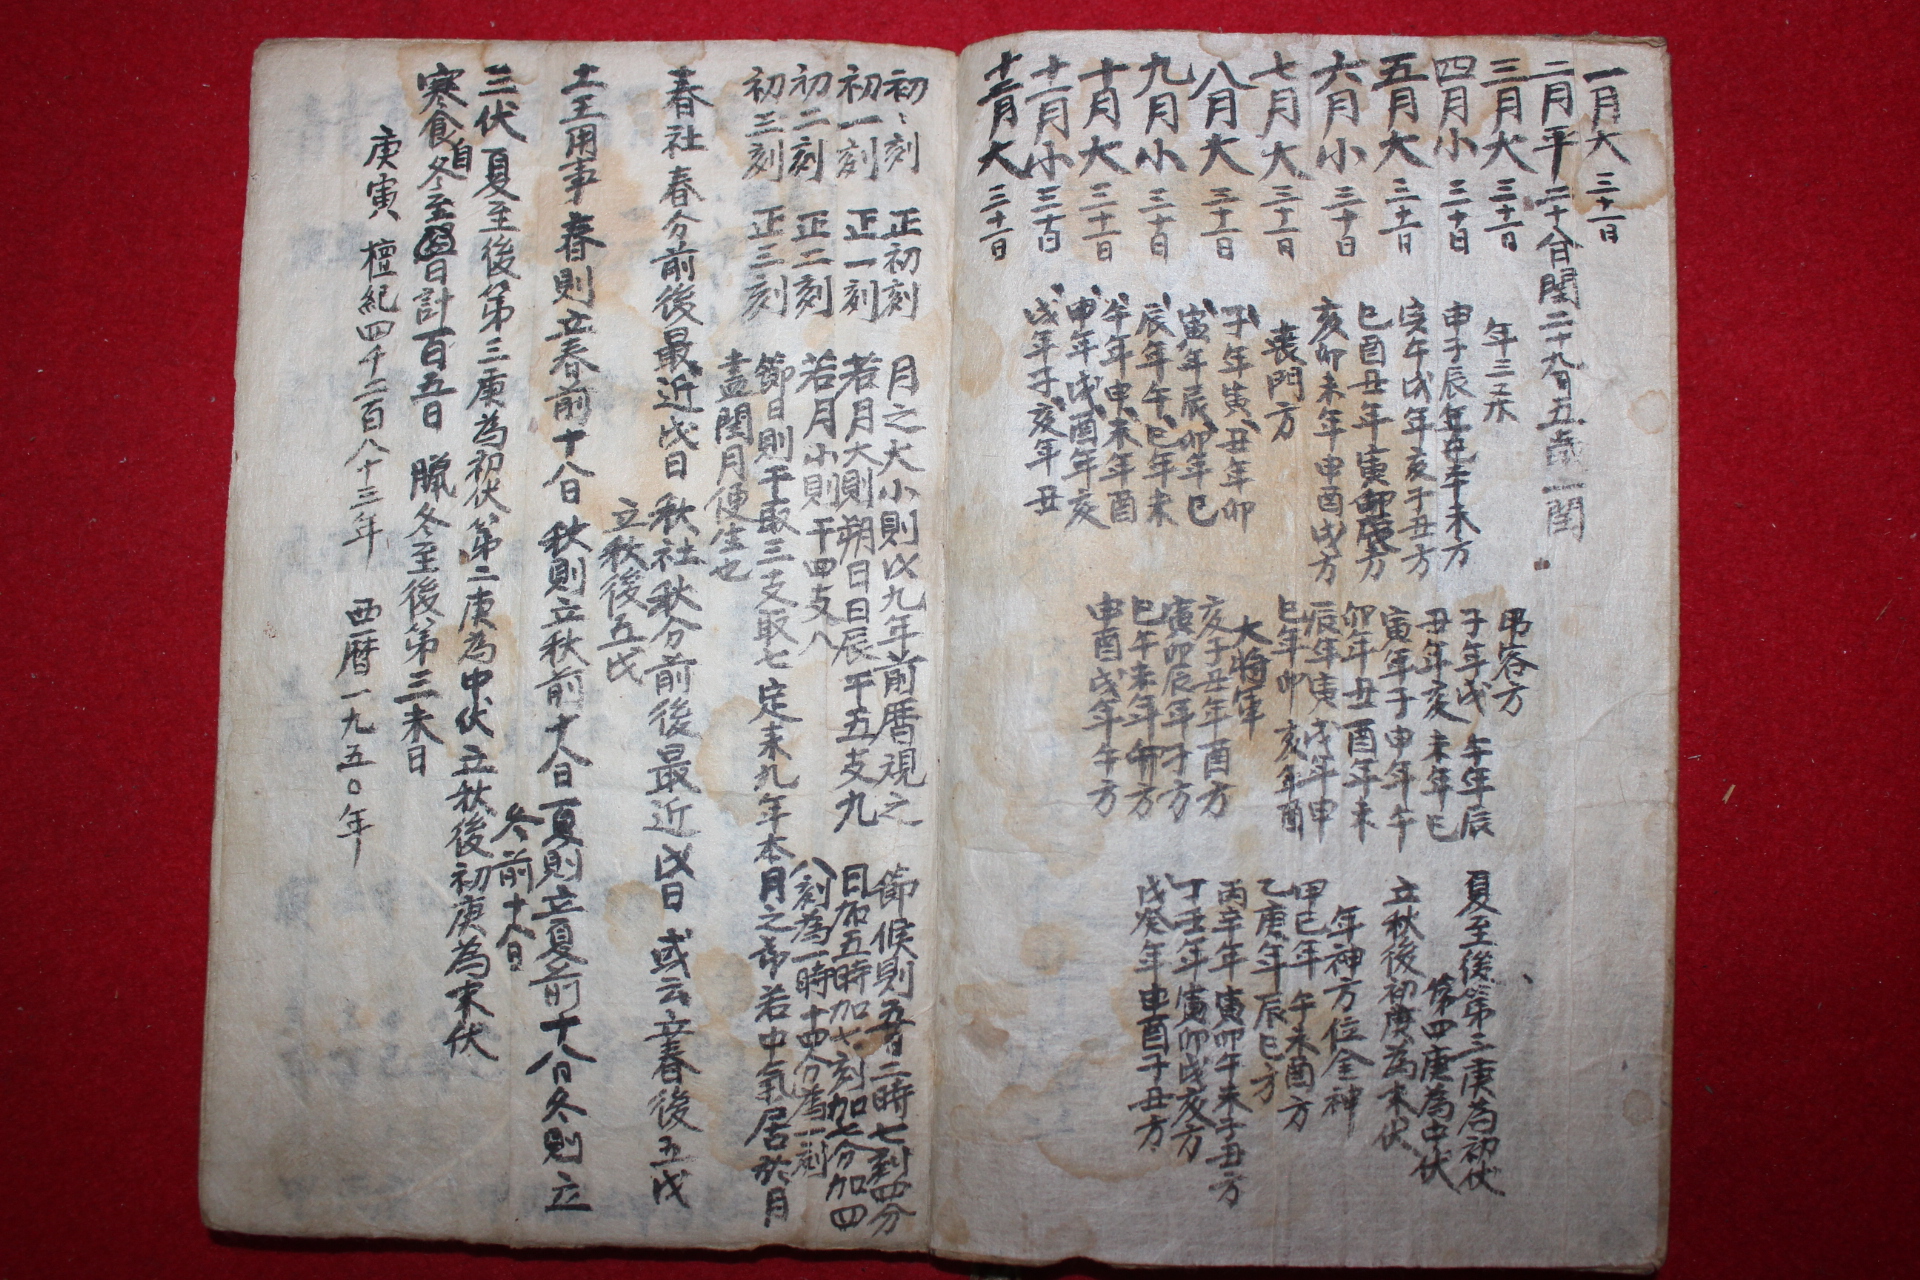 一月大 三十一日
二月平 二十八日 閏二十九日 五歲一閏
三月大 三十一日
四月小 三十日
五月大 三十一日
六月小 三十日
七月大 三十一日
八月大 三十一日
九月小 三十日
十月大 三十一日
十一月小 三十日
十二月大 三十一日
年三杀
申子辰年巳午未方
寅午戌年亥子丑方
巳酉丑年寅卯辰方
亥卯未年申酉戌方
喪門方
子年寅、丑年卯
寅年辰、卯年巳
辰年午、巳年未
午年申、未年酉
申年戌、酉年亥
戌年子、亥年丑
吊客方
子年戌 午年辰
丑年亥 未年巳
寅年子 申年午
卯年丑 酉年未
辰年寅 戌年申
巳年卯 亥年酉
大將軍
亥子丑年酉方
寅卯辰年子方
巳午未年卯方
申酉戌年午方
夏至後第三庚為初伏
第四庚為中伏
立秋後初庚為末伏
年神方位金神
甲己年 午未酉方
乙庚年 辰巳方
丙辛年 寅卯午未子丑方
丁壬年 寅卯戌亥方
戊癸年 申酉子丑方
初初刻 正初刻
初一刻 正一刻
初二刻 正二刻
初三刻 正三刻
月之大小則以九年前曆視之
若月大則朔日日辰干五支九
若月小則干四支八
節日則干取三支取七定未九年本月之節若中氣居於月
盡閏月便生也
節候則五日二時七刻四分
日加五時加七刻加七分加四
八刻為一時十四分為一刻
春社 春分前後最近戊日 秋社 秋分前後最近戊日 或云立春後五戊
立秋後五戊
土王用事 春則立春前十八日 秋則立秋前十八日 夏則立夏前十八日 冬則立
冬前十八日
三伏 夏至後第三庚為初伏 第二庚為中伏 立秋後初庚為末伏
寒食 自冬至日計一百五日 臘 冬至後第三未日
庚寅 檀紀四千二百八十三年 西曆一九五〇年